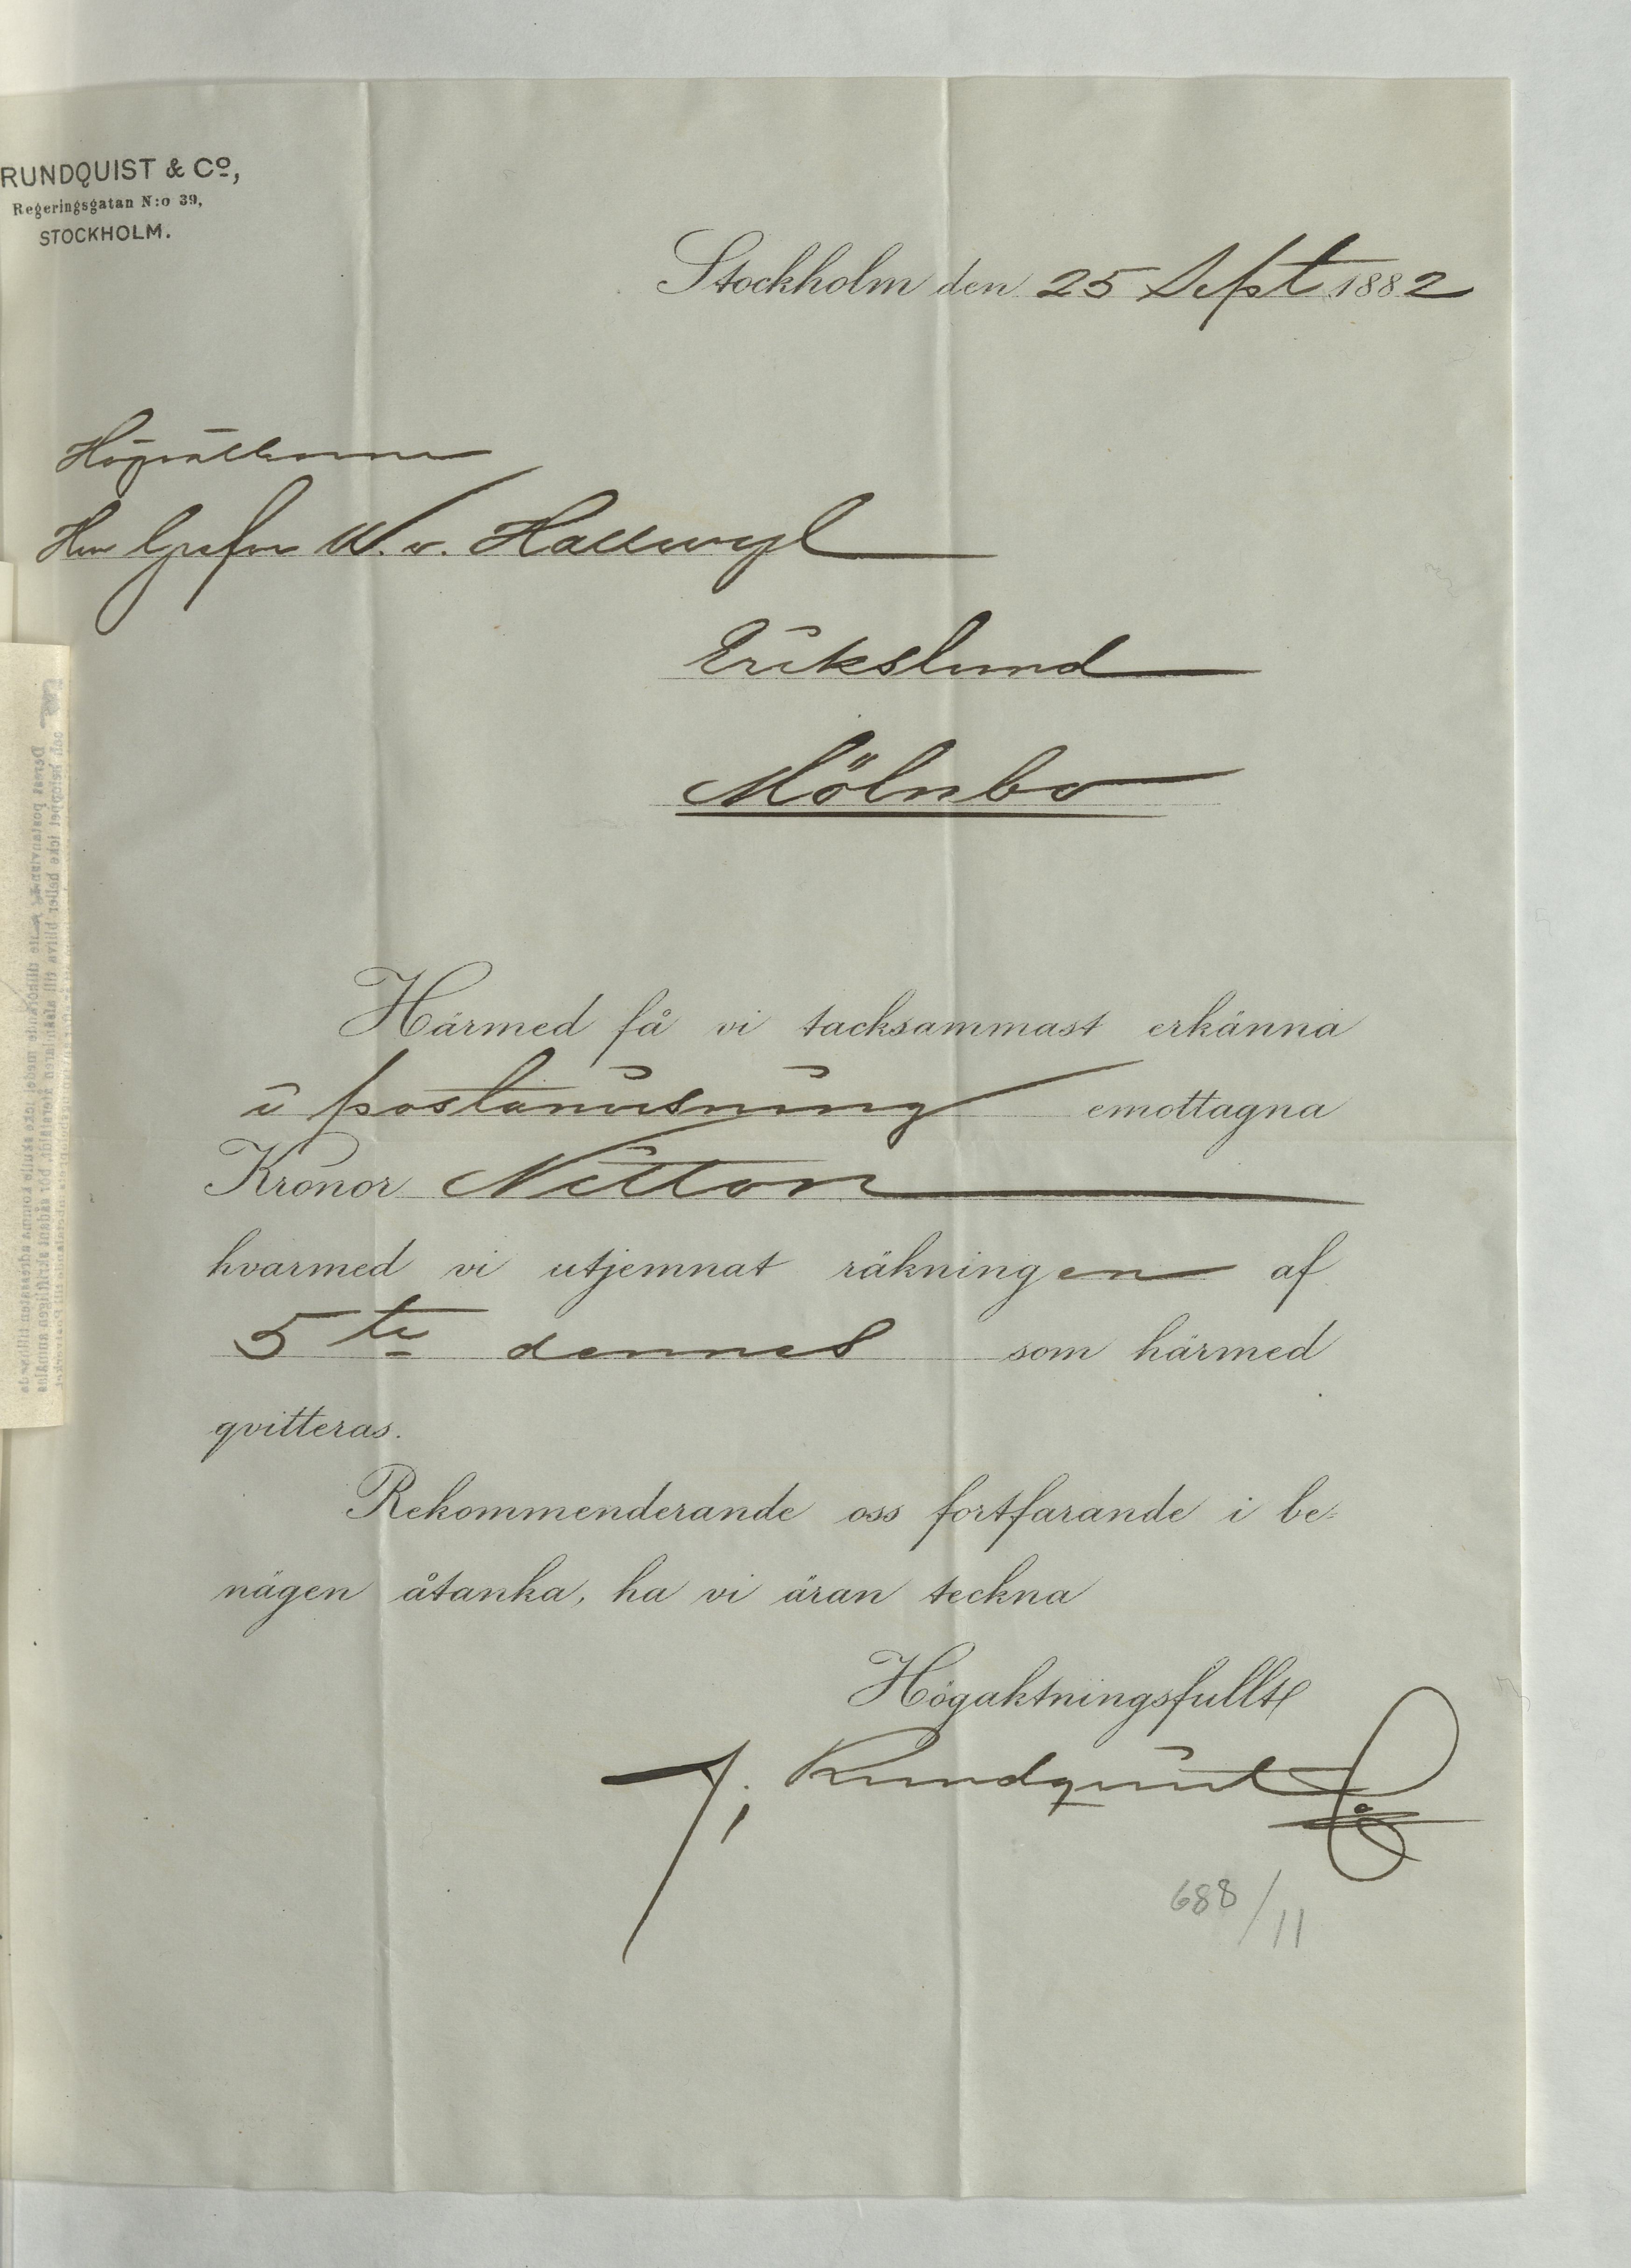 RUNDQUIST & Cº,
Regeringsgatan N:o 39,
STOCKHOLM.
Stockholm den 25 Sept 1882
Högvälborne
Herr Grefve W. v. Hallwyl
Erikslund
Mölnbo
Härmed få vi tacksammast erkänna
i postanvisning emottagna
Kronor Nitton
hvarmed vi utjemnat räkningen af
5te dennes som härmed
qvitteras.
Rekommenderande oss fortfarande i be-
nägen åtanka, ha vi äran teckna
Högaktningsfullt
J. Rundquist & Co
688/11